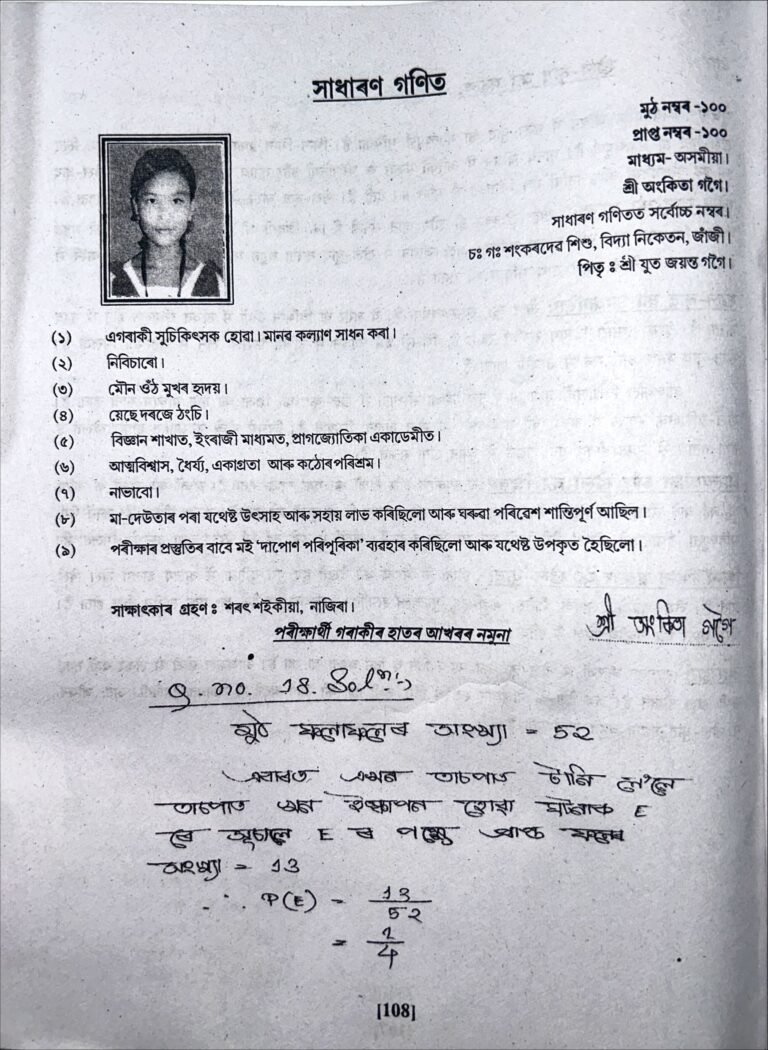 সাধাৰণ গণিত
মুঠ নম্বৰ -১০০
প্ৰাপ্ত নম্বৰ -১০০
মাধ্যম- অসমীয়া।
শ্ৰী অংকিতা গগৈ।
সাধাৰণ গণিতত সৰ্বোচ্চ নম্বৰ।
চঃ গঃ শংকৰদেৱ শিশু, বিদ্যা নিকেতন, জাঁজী।
পিতৃ : শ্ৰী যুত জয়ন্ত গগৈ।
(১) এগৰাকী সুচিকিৎসক হোৱা। মানৱ কল্যাণ সাধন কৰা।
(২) নিবিচাৰো।
(৩) মৌন ওঁঠ মুখৰ হৃদয়।
(৪) য়েছে দৰজে ঠংচি।
(৫) বিজ্ঞান শাখাত, ইংৰাজী মাধ্যমত, প্ৰাগজ্যোতিকা একাডেমীত।
(৬) আত্মবিশ্বাস, ধৈৰ্য্য, একাগ্ৰতা আৰু কঠোৰ পৰিশ্ৰম।
(৭) নাভাবো।
(৮) মা-দেউতাৰ পৰা যথেষ্ট উৎসাহ আৰু সহায় লাভ কৰিছিলো আৰু ঘৰুৱা পৰিৱেশ শান্তিপূৰ্ণ আছিল।
(৯) পৰীক্ষাৰ প্ৰস্তুতিৰ বাবে মই ‘দাপোণ পৰিপূৰিকা’ ব্যৱহাৰ কৰিছিলো আৰু যথেষ্ট উপকৃত হৈছিলো।
সাক্ষাৎকাৰ গ্ৰহণ : শৰৎ শইকীয়া, নাজিৰা।
শ্ৰী অংকিতা গগৈ
পৰীক্ষাৰ্থী গৰাকীৰ হাতৰ আখৰৰ নমুনা
Q no. 18. Solⁿ:-
মুঠ ফলাফলৰ সংখ্যা = 52
এবাৰত এখন তাচপাত টানি ল'লে
তাচপাত খন হোৱা ঘটনাক E
ৰে সূচালে E ৰ পক্ষে থকা ফলৰ
সংখ্যা = 13
∴ P(E) = 13/52
= 1/4
[108]